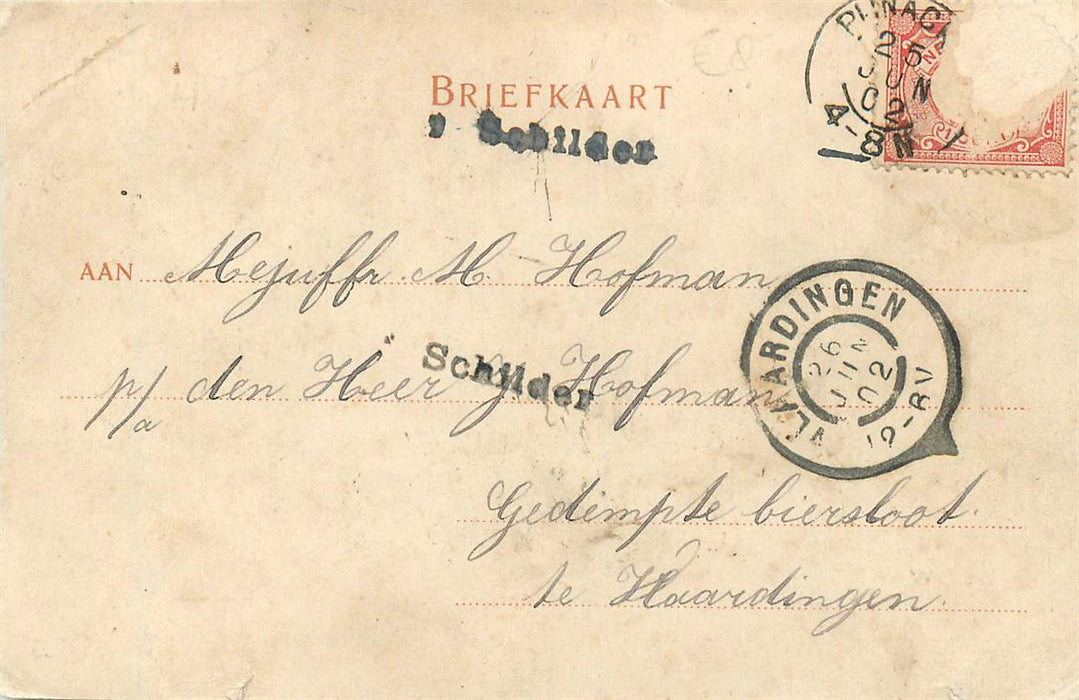 PIJNAC
25
JUN
02
4-8N
€8
BRIEFKAART
Schilder
AAN Mejuffr. M. Hofman
p/a den Heer J Hofman
Schilder
VLAARDINGEN
26
JUN
02
12-8V
Gedempte biersloot.
te Vlaardingen.